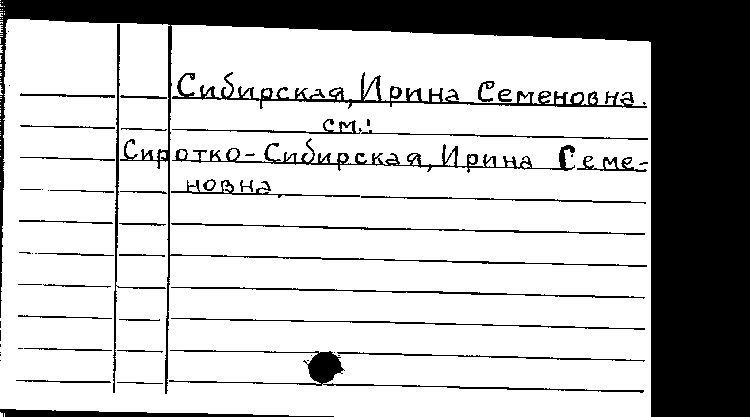 Сибирская, Ирина Семеновна.
см.:
Сиротко-Сибирская, Ирина Семе-
новна.